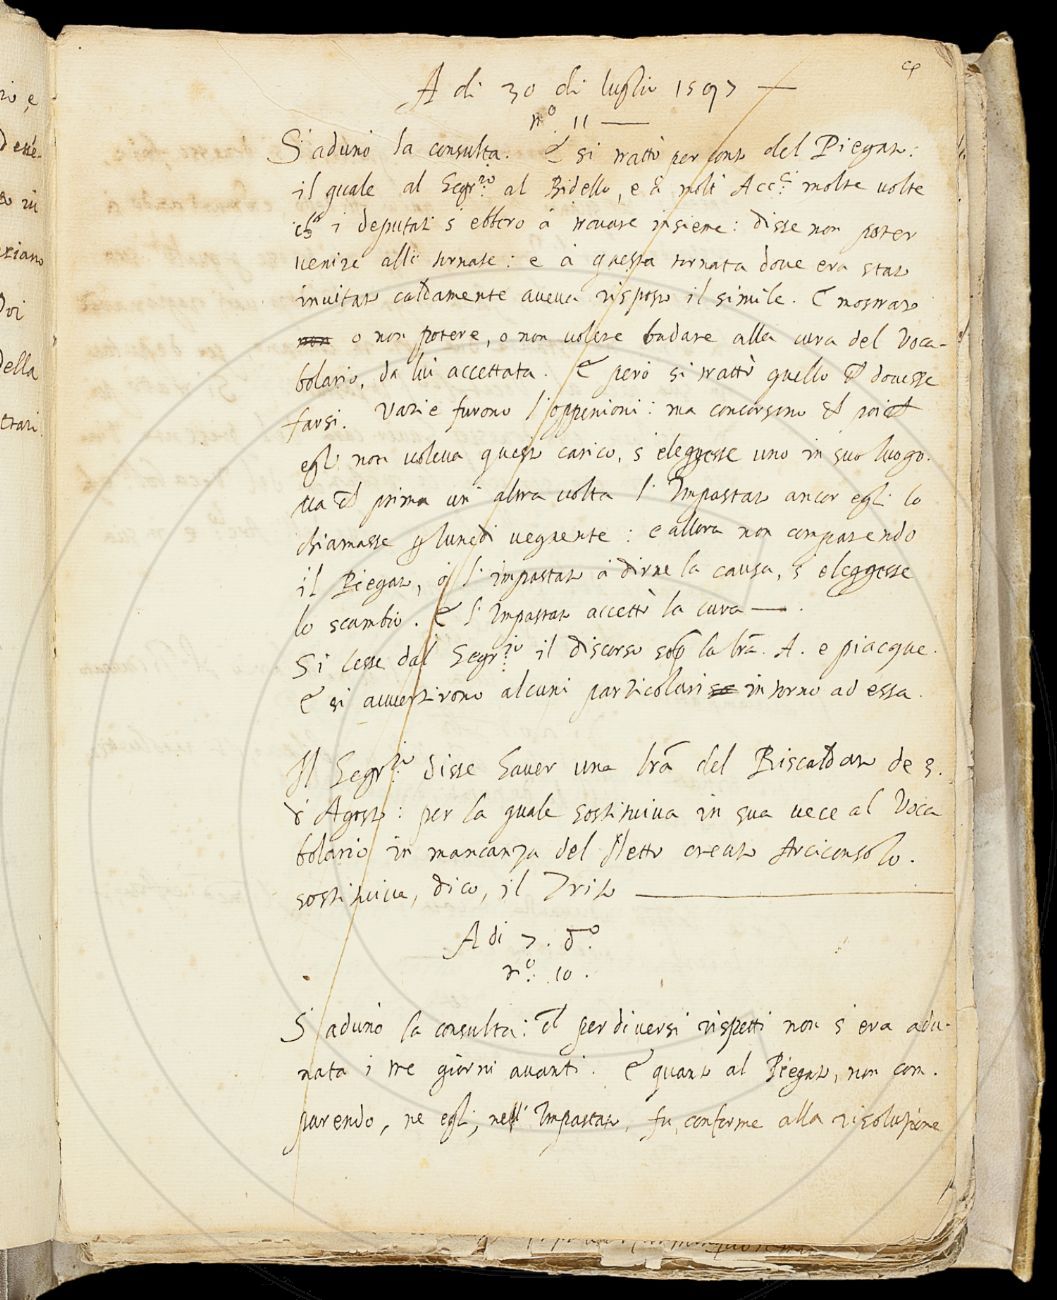 A di 30 di luglio 1597
n.º 11
S'adunò la consulta. E si trattò per conto del Piegato:
il quale al Segr.rio al Bidello, e a molti Acc.ci molte volte
i deputati s'ebbero à trovare insieme: disse non poter
venire alle tornate: e à questa tornata dove era stato
invitato caldamente aveva risposto il simile. E mostrato
non o non potere, o non volere badare alla cura del Voca-
bolario, da lui accettata. E però si trattò quello ch dovesse
farsi. Varie furono l'oppenioni: ma concorsono ch poich
egli non voleva questo carico, s'eleggesse uno in suo luogo.
ma ch prima un'altra volta l'Impastato ancor egli lo
chiamasse p lunedì vegnente: e allora non comparendo
il Piegato, ò l'impastato à dirne la causa, s'eleggesse
lo scambio. E l'Impastato accettò la cura
Si lesse dal Segr.rio il discorso sop la lra. A. e piacque.
E si avvertirono alcuni particolari intorno ad essa.
Il Segr.rio disse haver una lra del Riscaldato de 3.
d'Agosto: per la quale sostituiva in sua vece al Voca
bolario in mancanza del creato Arciconsolo.
sostituiva, dico, il Trito
A di 7. do
n.º 10.
S'adunò la consulta: ch per diversi rispetti non s'era adu-
nata i tre giorni avanti. E quanto al Piegato, non com-
parendo, ne egli, ne l'Impastato, fu, conforme alla risoluzione